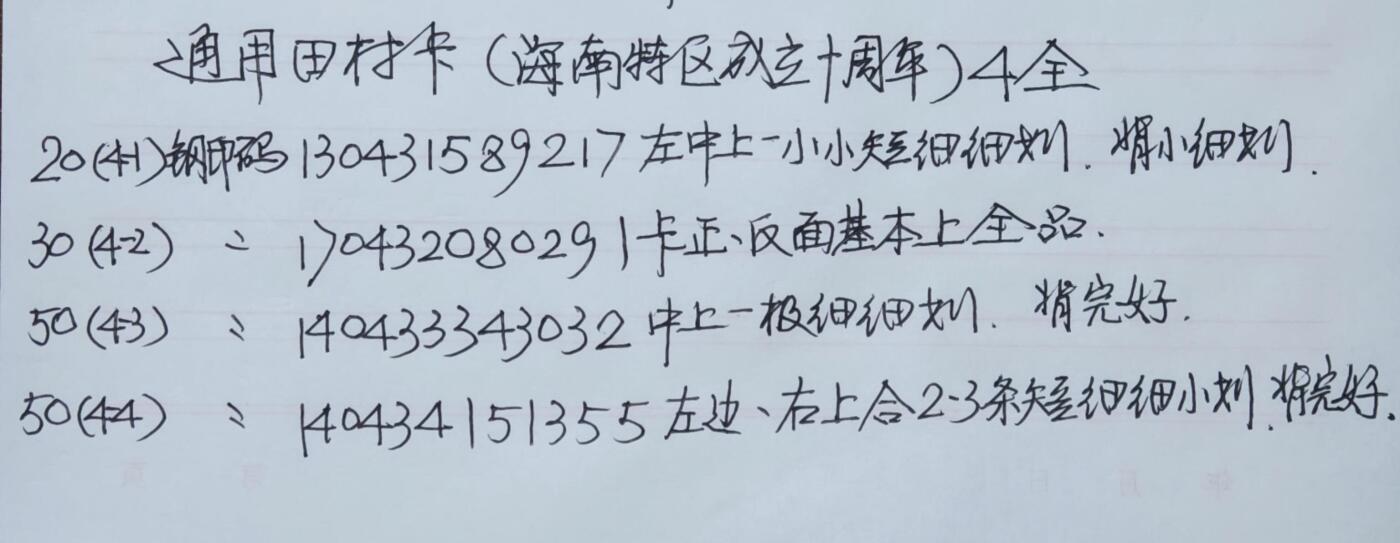 通用田村卡(海南特区成立十周年)4全
20(4-1)钢印码130431589217左中上一小小短细细划.背小细划.
30(4-2) 〃 170432080291卡正、反面基本上全品.
50(4-3) 〃 140433343032中上一极细细划.背完好.
50(4-4) 〃 140434151355左边、右上合2-3条短细细小划.背完好.